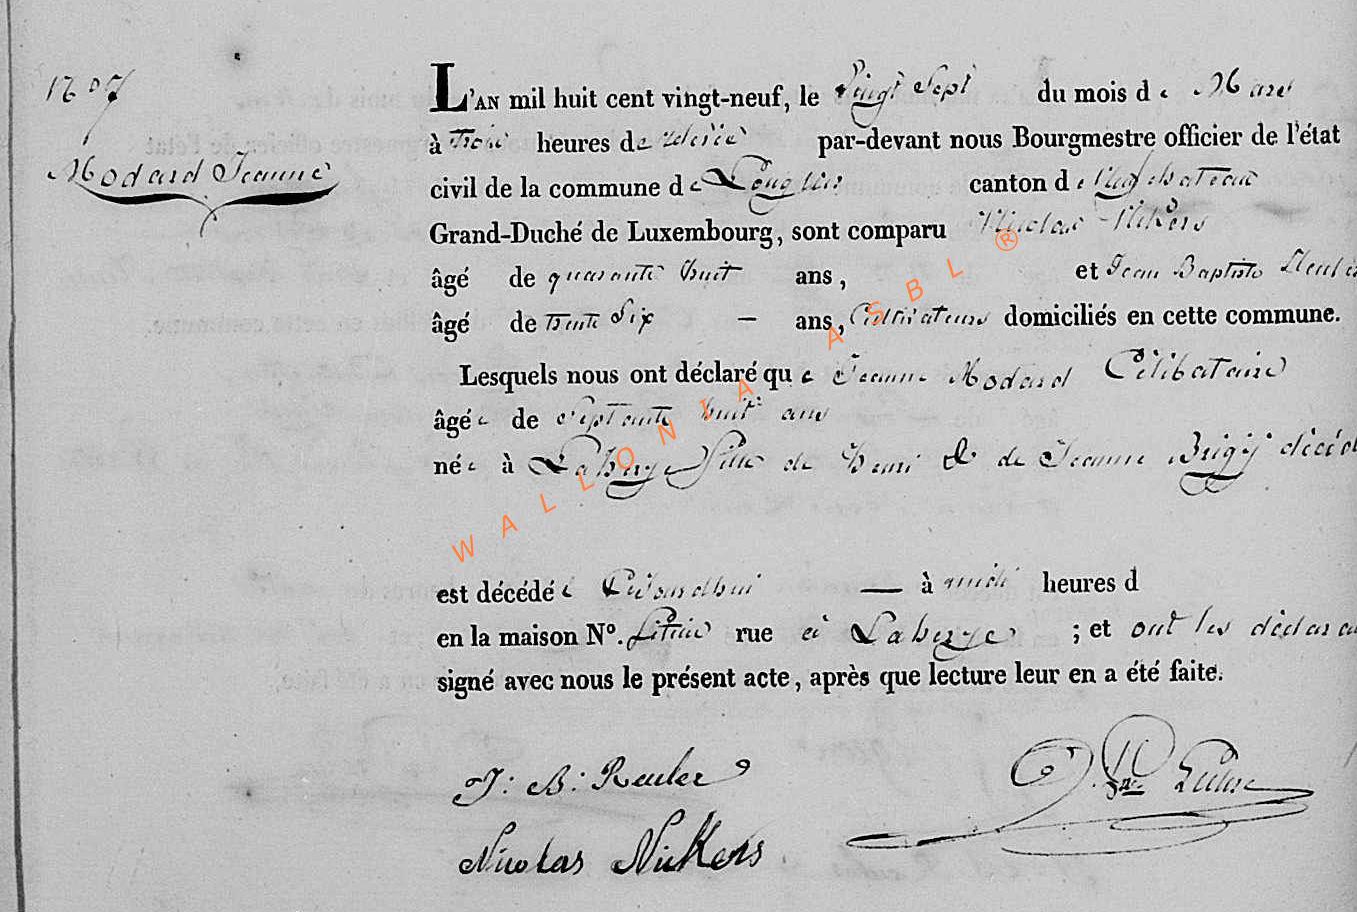 Modard Jeanne
L'AN mil huit cent vingt-neuf, le Vingt Sept du mois de Mars
à Trois heures de relevée par-devant nous Bourgmestre officier de l'état
civil de la commune de Longlier canton de Neufchateau
Grand-Duché de Luxembourg, sont comparu Nicolas Nickers
âgé de quarante huit ans, et Jean Baptiste Reuler
âgé de trente Six — ans, Cultivateurs domiciliés en cette commune.
Lesquels nous ont déclaré que Jeanne Modard Célibataire
âgée de Septante huit ans
née à Laherye fille de Henri & de Jeanne Brigij décéd
est décédée Aujourdhui — à midi heures d
en la maison N°. Sitoué rue à Laherye ; et ont les déclara
signé avec nous le présent acte, après que lecture leur en a été faite.
J: B: Reuler
Nicolas Nickers
WALLONIA ASBL ®